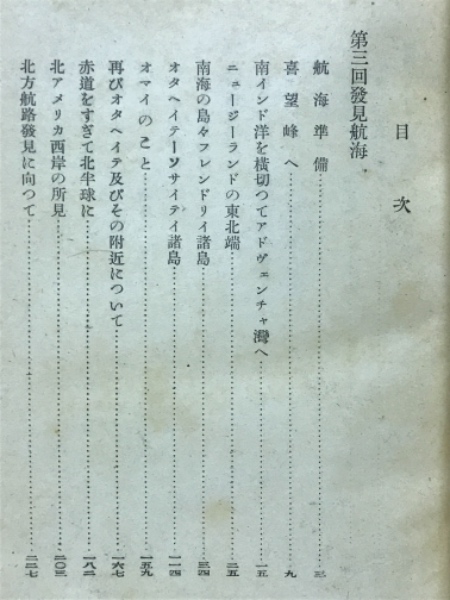 目次
第三回發見航海
航海準備……三
喜望峰へ……九
南インド洋を横切つてアドヴェンチャ灣へ……一五
ニュージーランドの東北端……二五
南海の島々フレンドリイ諸島……三四
オタヘイテーソサイテイ諸島……一一四
オマイのこと……一五九
再びオタヘイテ及びその附近について……一六七
赤道をすぎて北半球に……一八二
北アメリカ西岸の所見……二〇三
北方航路發見に向つて……二二七